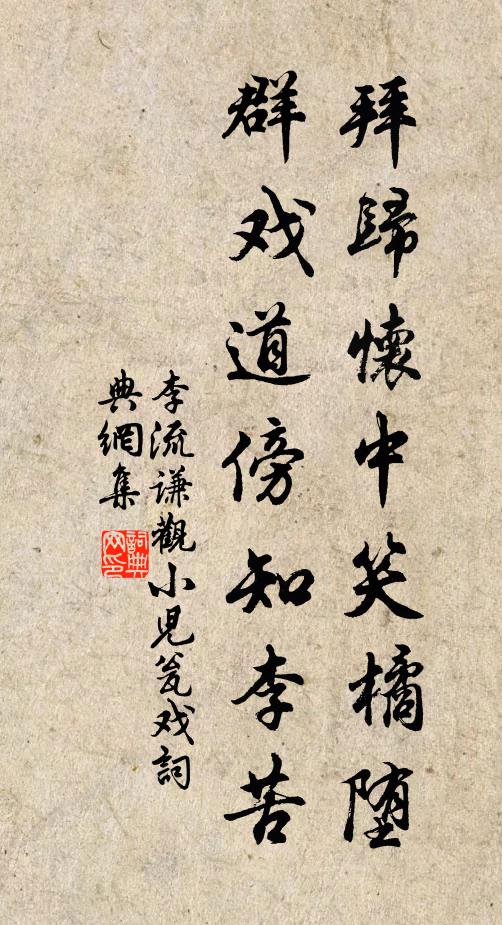 拜歸懷中笑橘堕
群戏道傍知李苦
李流谦觀小児瓮戏詞
典網集
詞典网印